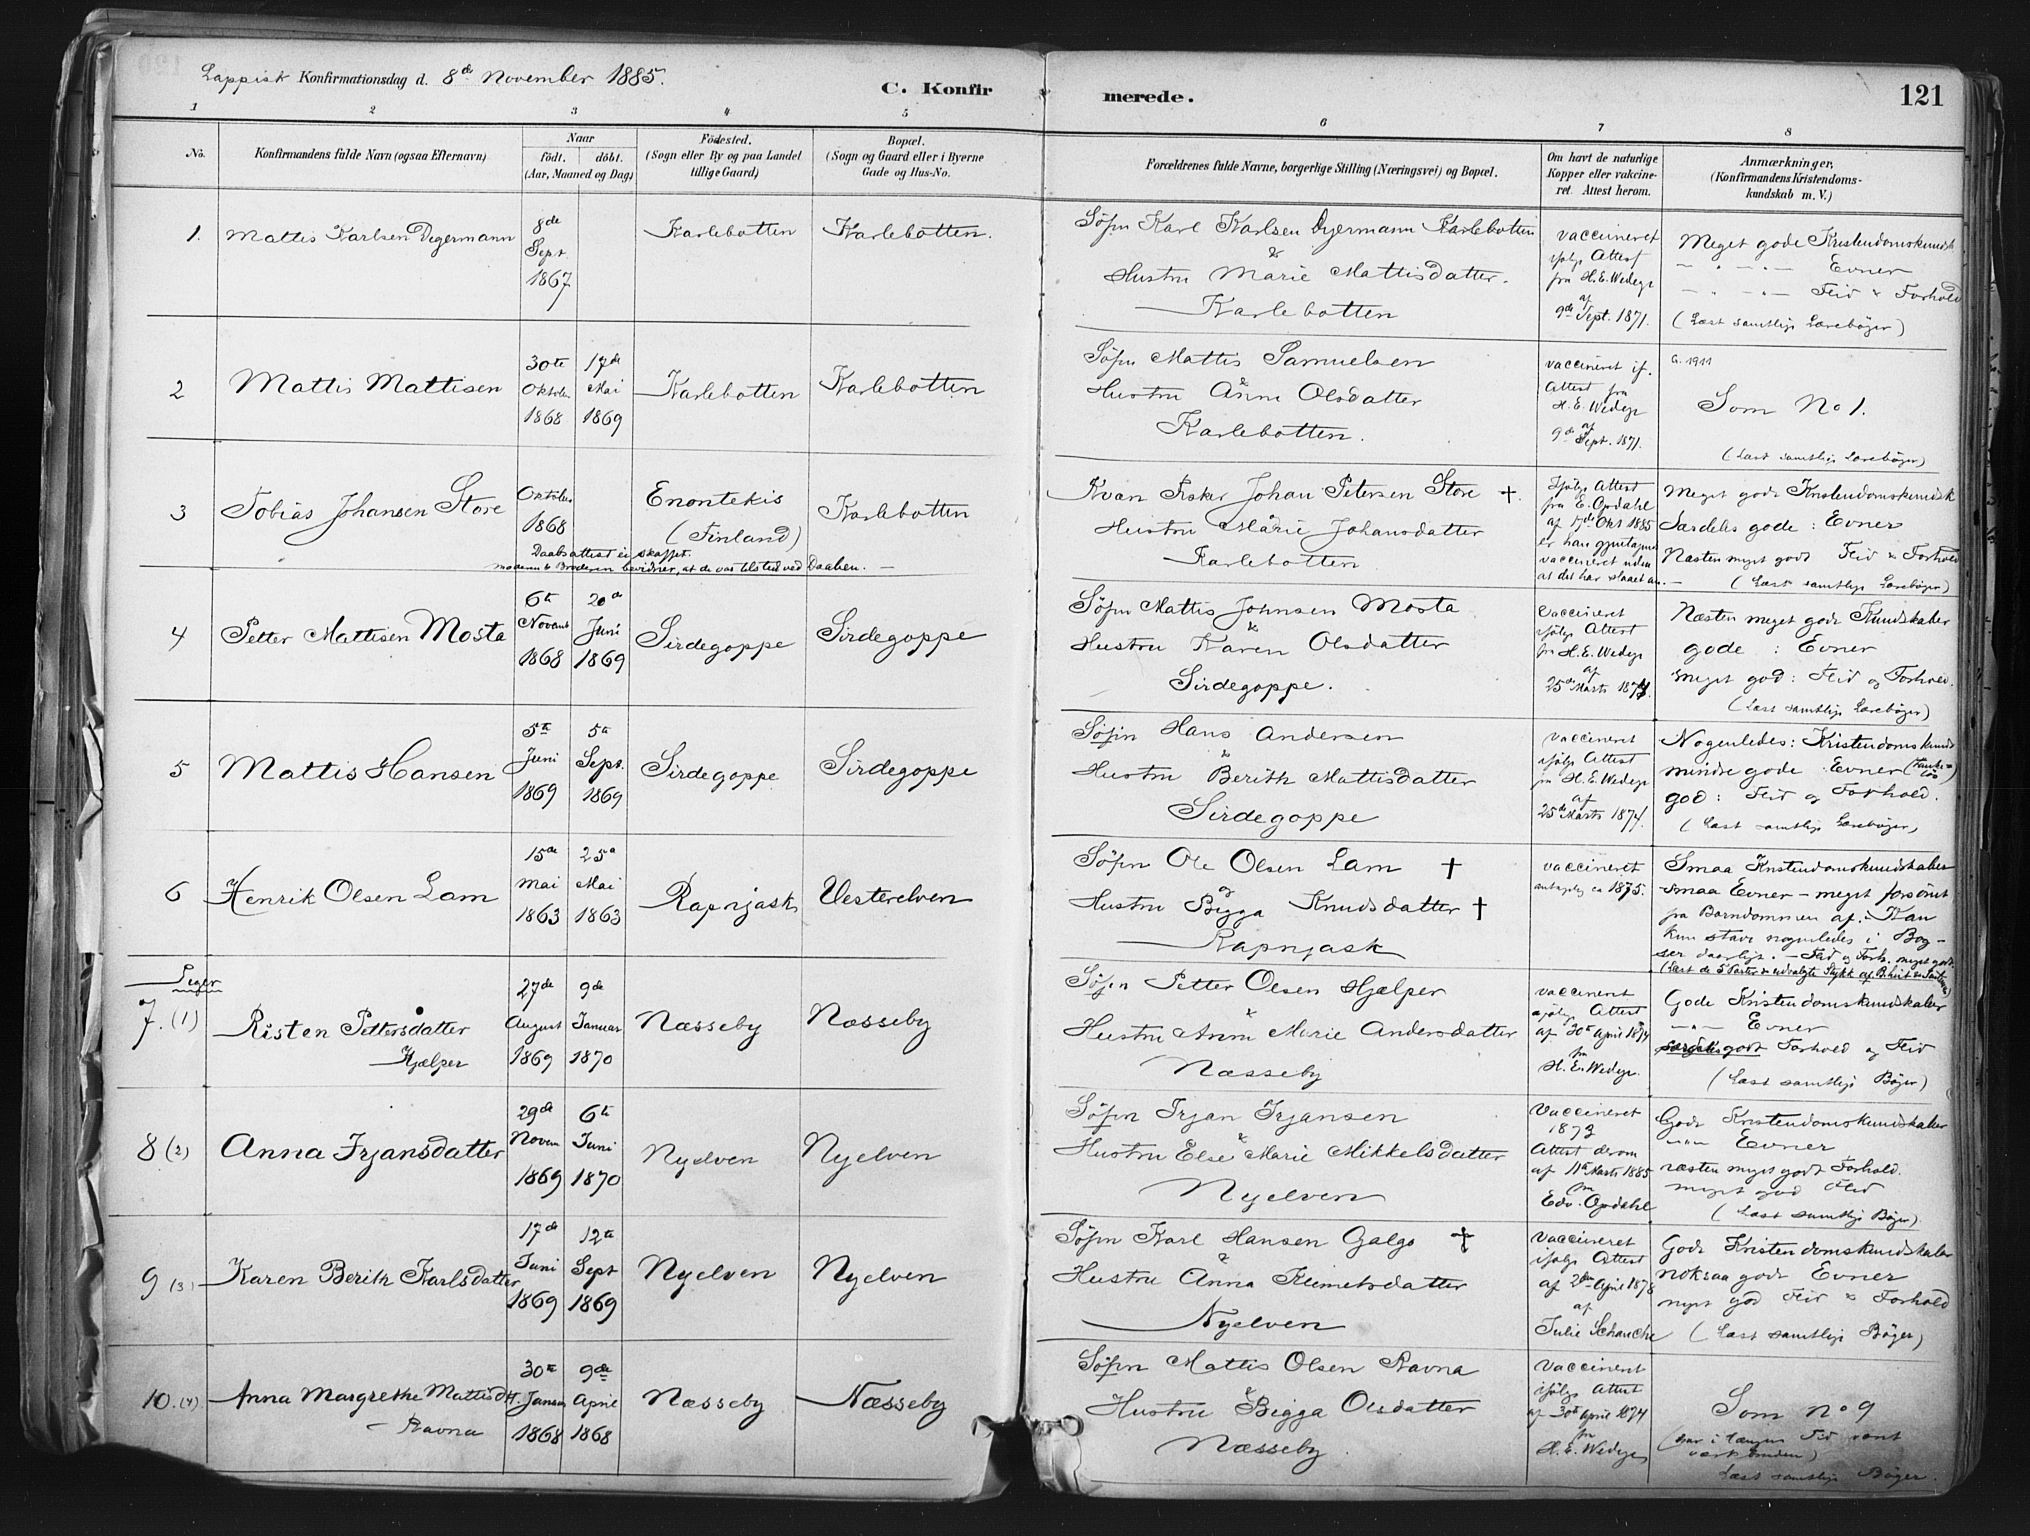 Lappisk Konfirmationsdag d. 8de November 1885.
C. Konfirmerede.
121
1 2 3 4 5 6 7 8
No.
Konfirmandens fulde Navn (ogsaa Efternavn)
Naar
födt. döbt.
(Aar, Maaned og Dag)
Födested.
(Sogn eller By og paa Landet
tillige Gaard)
Bopæl.
(Sogn og Gaard eller i Byerne
Gade og Hus-No.
Forældrenes fulde Navne, borgerlige Stilling (Næringsvei) og Bopæl.
Om havt de naturlige
Kopper eller vakcine-
ret. Attest herom.
Anmærkninger,
(Konfirmandens Kristendoms-
kundskab m. V.)
1. Mattis Karlsen Digermann
8de
Sept.
1867
Karlebotten
Karlebotten.
Søfin Karl Karlsen Digermann Karlebotten
&
Hustru Marie Mattisdatter.
Karlebotten
vaccineret
ifølge Attest
fra H. E. Wedege
af
9de Sept. 1871.
Meget gode Kristendomskundsk
Evner
Flid & Forhold
(Læst samtlige Lærebøger)
2 Mattis Mattisen
30te
Oktober
1868
17de
Mai
1869
Karlebotten
Karlebotten
Søfin Mattis Samuelsen
&
Hustru Anne Olsdatter
Karlebotten.
vaccineret if.
Attest fra
H. E. Wedege
af
9de Sept. 1871.
G. 1911
Som No 1.
(Læst samtlige Lærebøger)
3 Tobias Johansen Store
Oktober
1868
Enontekis
(Finland)
Karlebotten
Daabsattest ei skaffet.
moderen & Broderen bevidner, at de var tilsted ved Daaben. —
Kvæn Fisker Johan Petersen Store †.
&
Hustru Marie Johansdatter
Karlebotten
Ifølge Attest
fra E. Opdahl
af 17de Okt 1885
er han gjentagne
vaccineret uden
at det har slaaet an. —
Meget gode Kristendomskundsk
Særdeles gode: Evner
Næsten meget godt Flid & Forhold
(Læst samtlige Lærebøger)
4 Petter Mattisen Mosta
6te
Novemb
1868
20de
Juni
1869
Sirdegoppe
Sirdegoppe
Søfin Mattis Johnsen Mosta
&
Hustru Karen Olsdatter
Sirdegoppe.
Vaccineret
ifølge Attest
fra H. E. Wedege
af
25de Marts 1874
Næsten meget gode Kundskaber
gode: Evner
meget god: Flid og Forhold.
(Læst samtlige Lærebøger)
5 Mattis Hansen
5te
Juni
1869
5te
Sept.
1869
Sirdegoppe
Sirdegoppe
Søfin Hans Andersen
&
Hustru Berith Mattisdatter
Sirdegoppe
vaccineret
ifølge Attest
fra H. E. Wedege
af
25de Marts 1874.
Nogenledes: Kristendomskunds
mindre gode Evner (Tanke=
løs)
god: Flid og Forhold.
(Læst samtlige Lærebøger)
6 Henrik Olsen Lam
15de
Mai
1863
25de
Mai
1863
Rapnjask
Vesterelven
Søfin Ole Olsen Lam †
og
Hustru Bigga Knudsdatter †
Rapnjask
vaccineret
antagelig ca 1875.
Smaa Kristendomskundskaber
smaa Evner — meget forsømt
fra Barndommen af. Kan
kun stave nogenledes i Bog —
ser daarligt. — Flid og Forh. meget godt
Piger
7. (1) Risten Pettersdatter
Hjælper
27de
August
1869
9de
Januar
1870
Næsseby
Næsseby
Søfin Petter Olsen Hjælper
&
Hustru Anne Marie Andersdatter
Næsseby
vaccineret
ifølge Attest
af 30te April 1874
fra
H. E. Wedege.
Gode Kristendomskundskaber
Evner
særdeles godt Forhold og Flid
(Læst samtlige Bøger)
8 (2) Anna Irjansdatter
29de
Novem
1869
6te
Juni
1870
Nyelven
Nyelven
Søfin Irjan Irjansen
&
Hustru Else Marie Mikkelsdatter
Nyelven
Vaccineret
1873
Attest derom
af 11te Marts 1885
fra
Edv. Opdahl
Gode Kristendomskundskaber
Evner
næsten meget godt Forhold.
meget god Flid
(Læst samtlige Bøger)
9 (3) Karen Berith Karlsdatter
17de
Juni
1869
12te
Sept
1869
Nyelven
Nyelven
Søfin Karl Hansen Galgo †
&
Hustru Anna Klemetsdatter
Nyelven
Vaccineret
ifølge Attest
af 2den April 1878
af
Julie Schanche
Gode Kristendomskundskaber
noksaa gode Evner
meget god Flid & Forhold
(Læst samtlige Bøger)
10. (4) Anna Margrethe Mattisdt.
— Ravna
30te
Januar
1868
9de
April
1868
Næsseby
Næsseby
Søfin Mattis Olsen Ravna
&
Hustru Bigga Olsdatter
Næsseby.
Vaccineret
ifølge Attest
af 30te April 1874
fra
H. E. Wedege
Som No 9
(har i længere Tid været
Læst samtlige Bøger.